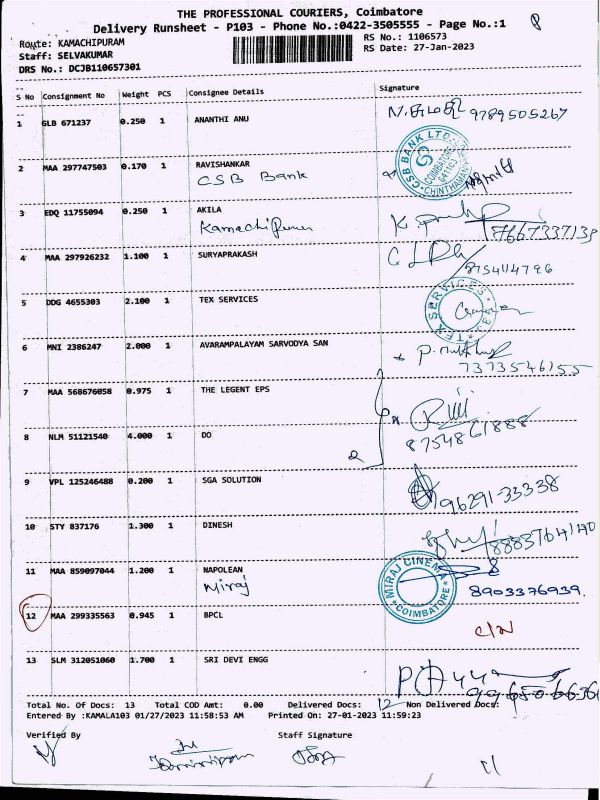 THE PROFESSIONAL COURIERS, Coimbatore
Delivery Runsheet - P103 - Phone No.:0422-3505555 - Page No.:1
Route: KAMACHIPURAM
RS No.: 1106573
Staff: SELVAKUMAR
RS Date: 27-Jan-2023
DRS No.: DCJB110657301
S No Consignment No Weight PCS Consignee Details Signature
1 GLB 671237 0.250 1 ANANTHI ANU 9789505267
2 MAA 297747503 0.170 1 RAVISHANKAR
CSB Bank
CSB BANK LTD. COIMBATORE 641103 CHINTHAMANI
3 EDQ 11755094 0.250 1 AKILA
Kamachipuram 7667337139
4 MAA 297926232 1.100 1 SURYAPRAKASH
8754114796
5 DDG 4655303 2.100 1 TEX SERVICES
TEX SERVICES
6 MNI 2386247 2.000 1 AVARAMPALAYAM SARVODYA SAN
7373546155
7 MAA 568676058 0.975 1 THE LEGENT EPS
8 NLM 51121540 4.000 1 DO
8754861888
9 VPL 125246488 0.200 1 SGA SOLUTION
96291-33338
10 STY 837176 1.300 1 DINESH
8883764140
11 MAA 859097044 1.200 1 NAPOLEAN
Miraj
MIRAJ CINEMA COIMBATORE
8903376939.
12 MAA 299335563 0.945 1 BPCL
13 SLM 312051060 1.700 1 SRI DEVI ENGG
Total No. Of Docs: 13 Total COD Amt: 0.00 Delivered Docs: 12 Non Delivered Docs:
Entered By :KAMALA103 01/27/2023 11:58:53 AM Printed On: 27-01-2023 11:59:23
Verified By Staff Signature